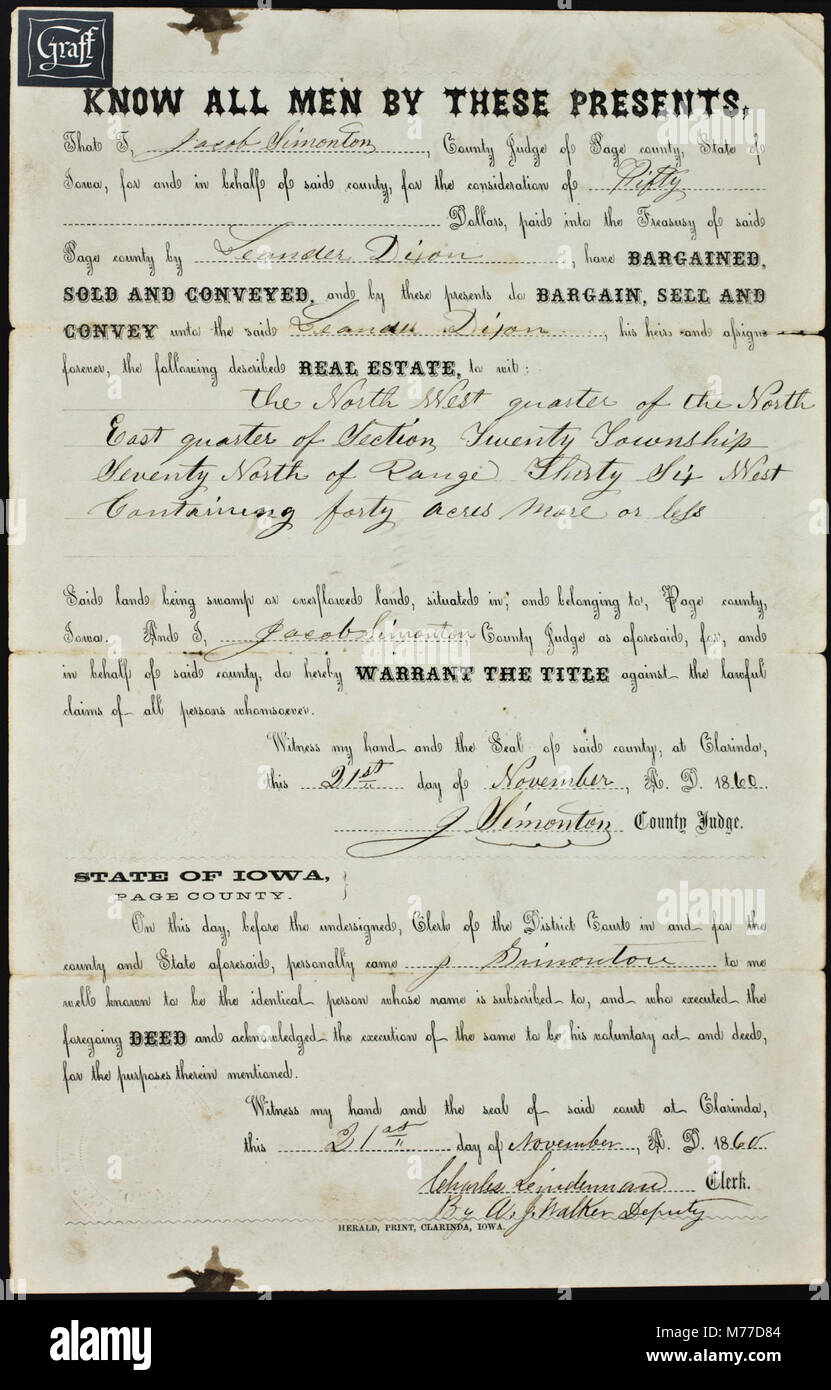 Graff
KNOW ALL MEN BY THESE PRESENTS,
That I, Jacob Simonton, County Judge of Page county, State of
Iowa, for and in behalf of said county, for the consideration of Fifty
Dollars, paid into the Treasury of said
Page county by Leander Dixon, have BARGAINED,
SOLD AND CONVEYED, and by these presents do BARGAIN, SELL AND
CONVEY unto the said Leander Dixon, his heirs and assigns
forever, the following described REAL ESTATE, to wit:
the North West quarter of the North
East quarter of Section Twenty Township
Seventy North of Range Thirty Six West
Containing forty acres more or less
Said land being swamp or overflowed land, situated in, and belonging to, Page county,
Iowa. And I, Jacob Simonton County Judge as aforesaid, for, and
in behalf of said county, do hereby WARRANT THE TITLE against the lawful
claims of all persons whomsoever.
Witness my hand and the Seal of said county, at Clarinda,
this 21st day of November, A. D. 1860.
J Simonton County Judge.
STATE OF IOWA,
PAGE COUNTY.
On this day, before the undersigned, Clerk of the District Court in and for the
county and State aforesaid, personally came J Simonton to me
well known to be the identical person whose name is subscribed to, and who executed the
foregoing DEED and acknowledged the execution of the same to be his voluntary act and deed,
for the purposes therein mentioned.
Witness my hand and the seal of said court at Clarinda,
this 21st day of November, A. D. 1860
Charles Linderman Clerk.
By A. J. Walker Deputy
HERALD, PRINT, CLARINDA, IOWA.
alamy
alamy
Image ID: M77D84
www.alamy.com